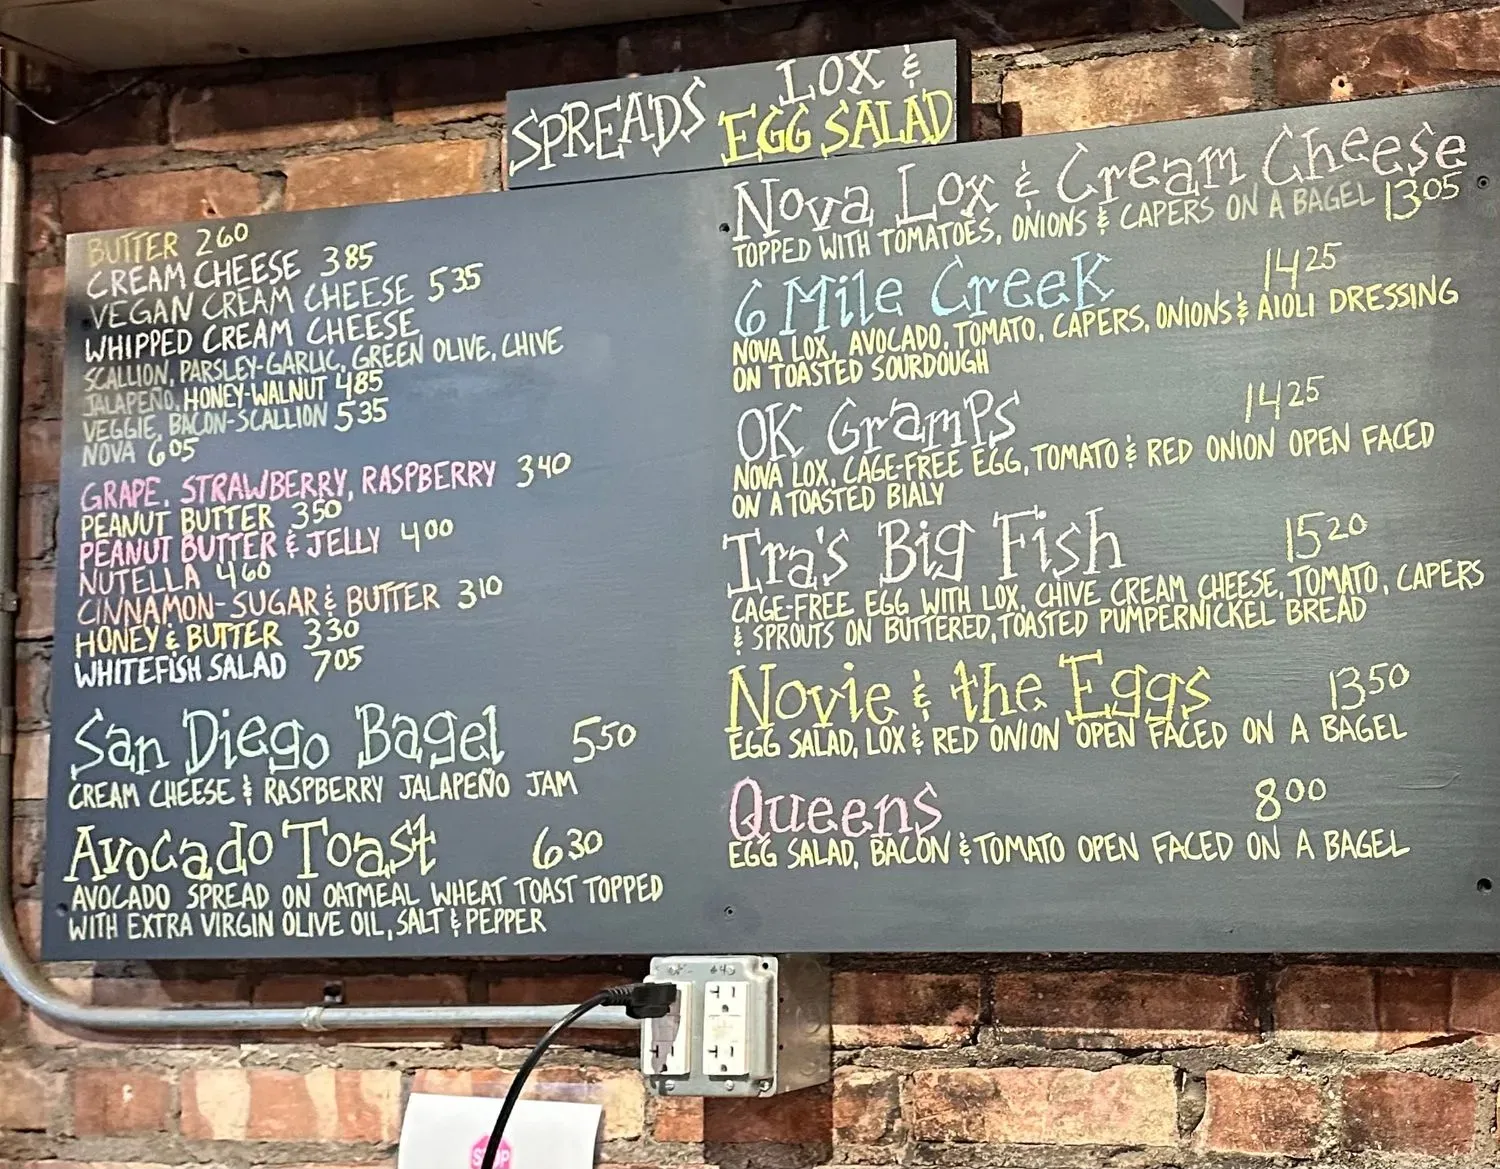 SPREADS LOX &
EGG SALAD
BUTTER 260
CREAM CHEESE 385
VEGAN CREAM CHEESE 535
WHIPPED CREAM CHEESE
SCALLION, PARSLEY-GARLIC, GREEN OLIVE, CHIVE
JALAPEÑO, HONEY-WALNUT 485
VEGGIE, BACON-SCALLION 535
NOVA 605
GRAPE, STRAWBERRY, RASPBERRY 340
PEANUT BUTTER 350
PEANUT BUTTER & JELLY 400
NUTELLA 460
CINNAMON-SUGAR & BUTTER 310
HONEY & BUTTER 330
WHITEFISH SALAD 705
San Diego Bagel 550
CREAM CHEESE & RASPBERRY JALAPEÑO JAM
Avocado Toast 630
AVOCADO SPREAD ON OATMEAL WHEAT TOAST TOPPED
WITH EXTRA VIRGIN OLIVE OIL, SALT & PEPPER
Nova Lox & Cream Cheese
TOPPED WITH TOMATOES, ONIONS & CAPERS ON A BAGEL 1305
6 Mile Creek 1425
NOVA LOX, AVOCADO, TOMATO, CAPERS, ONIONS & AIOLI DRESSING
ON TOASTED SOURDOUGH
OK Gramps 1425
NOVA LOX, CAGE-FREE EGG, TOMATO & RED ONION OPEN FACED
ON A TOASTED BIALY
Ira's Big Fish 1520
CAGE-FREE EGG WITH LOX, CHIVE CREAM CHEESE, TOMATO, CAPERS
& SPROUTS ON BUTTERED, TOASTED PUMPERNICKEL BREAD
Novie & the Eggs 1350
EGG SALAD, LOX & RED ONION OPEN FACED ON A BAGEL
Queens 800
EGG SALAD, BACON & TOMATO OPEN FACED ON A BAGEL
STOP